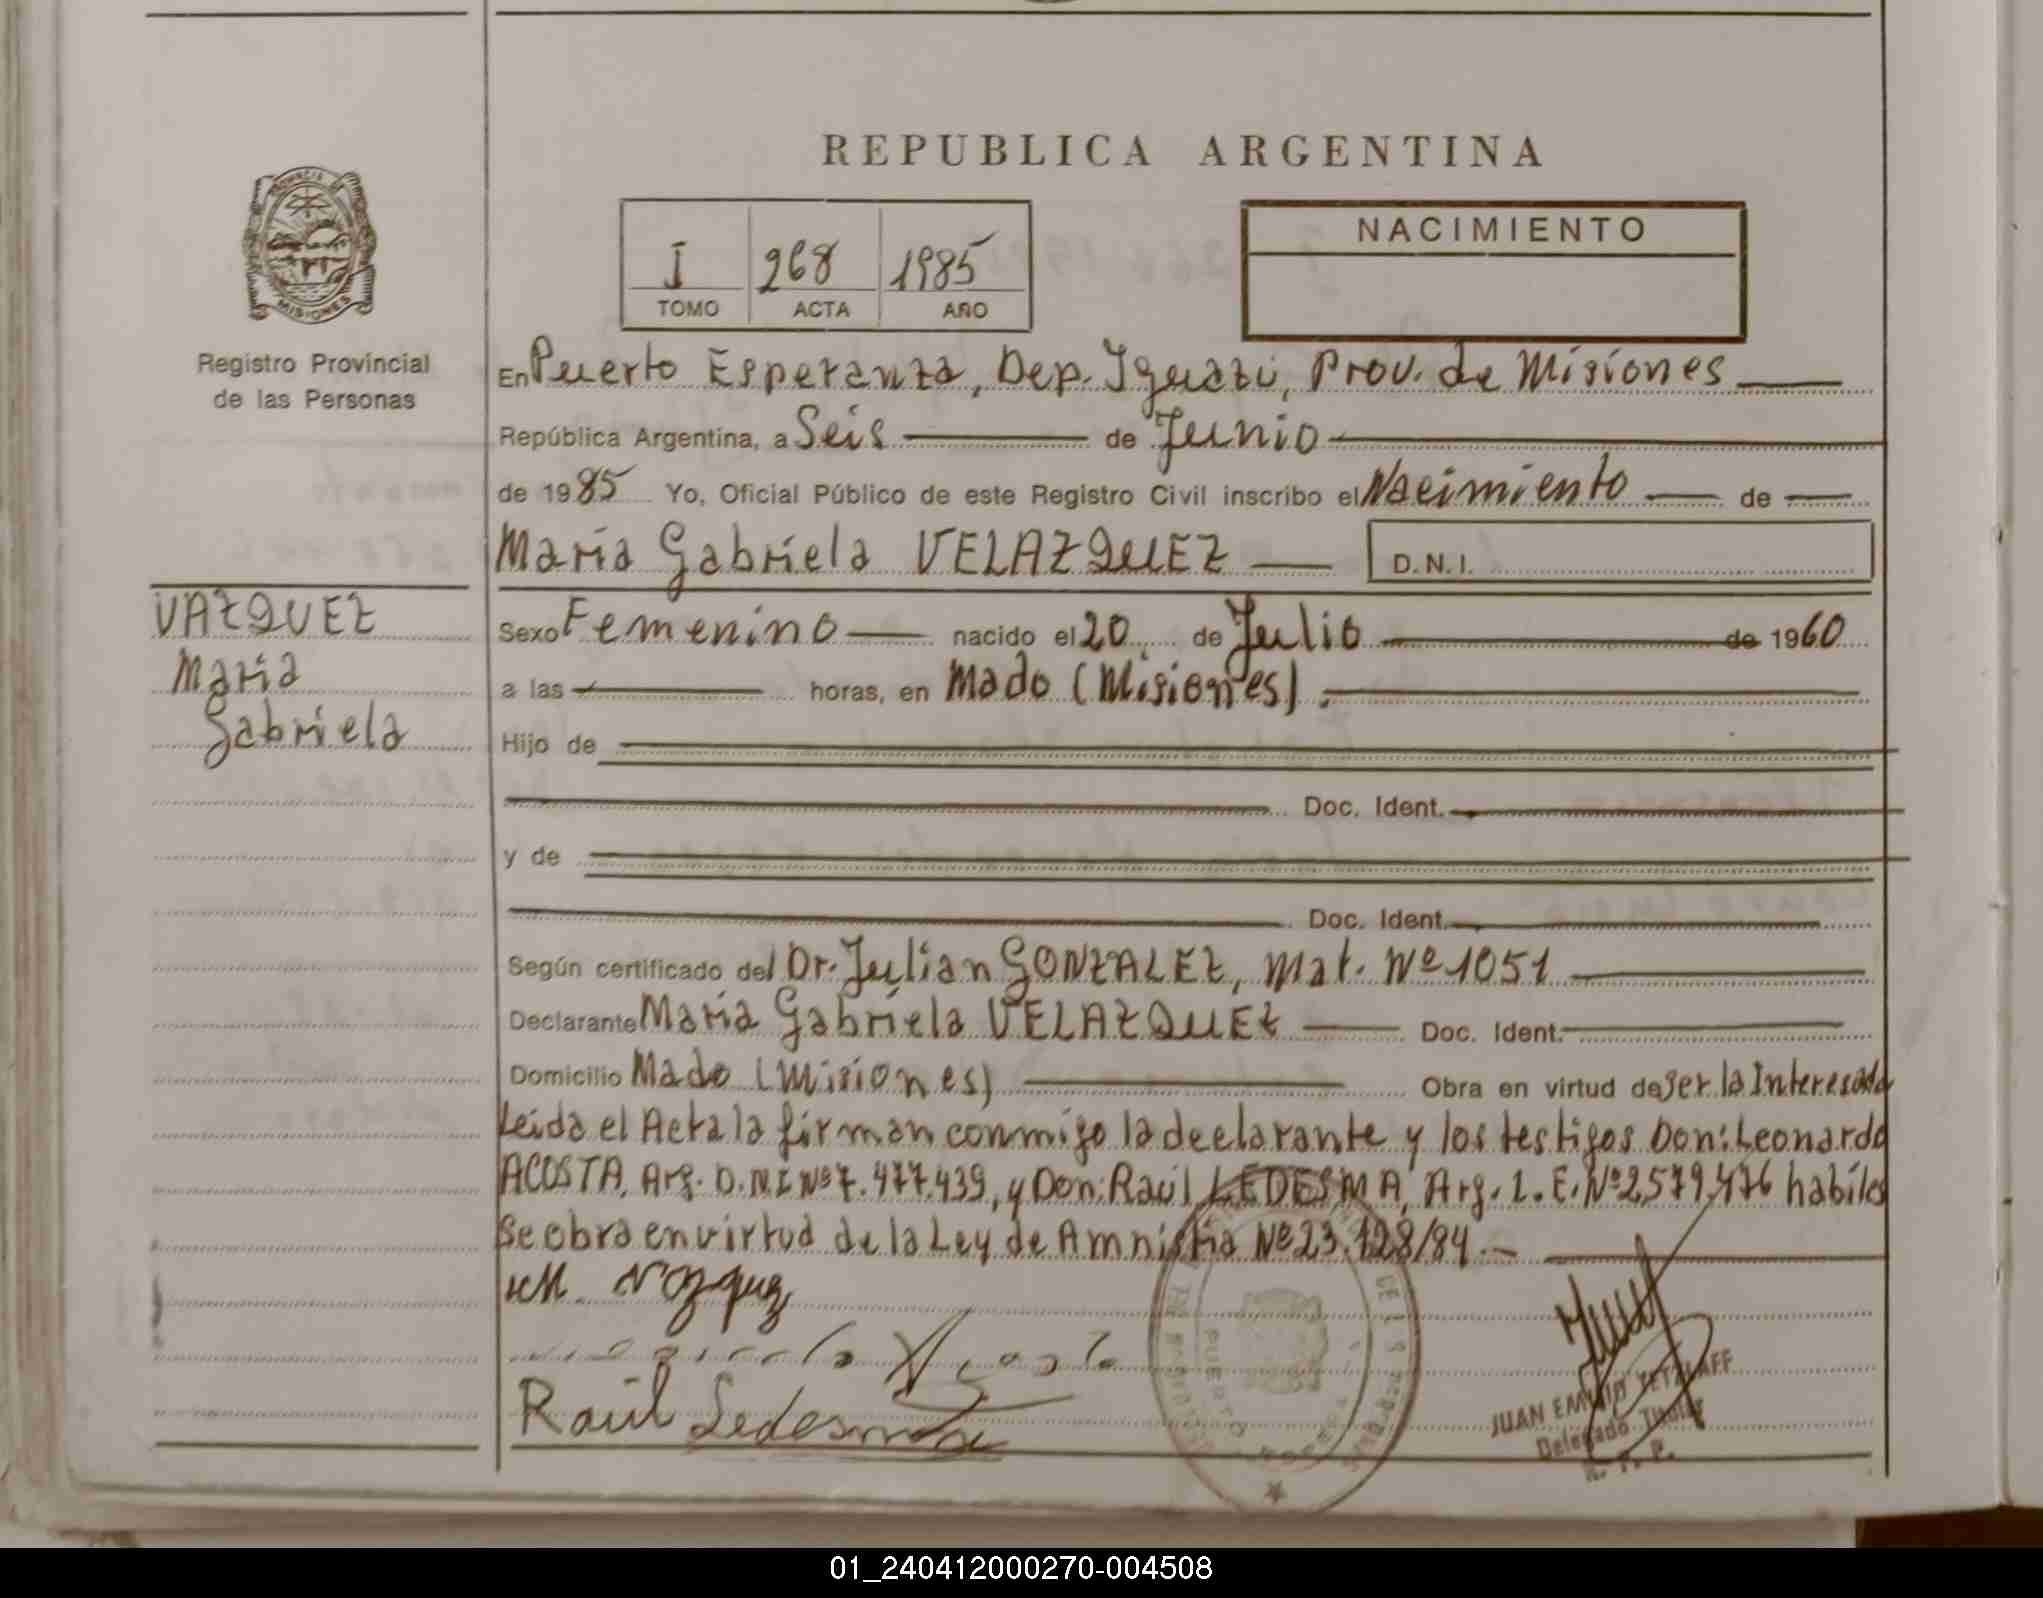 REPUBLICA ARGENTINA
PROVINCIA
MISIONES
Registro Provincial
de las Personas
I 268 1985
TOMO ACTA AÑO
NACIMIENTO
En Puerto Esperanza, Dep. Iguazú, Prov. de Misiones
República Argentina, a Seis de Junio
de 1985 Yo, Oficial Público de este Registro Civil inscribo el Nacimiento de
Maria Gabriela VELAZQUEZ D.N.I.
VAZQUEZ
Maria
Gabriela
Sexo Femenino nacido el 20 de Julio de 1960
a las horas, en Mado (Misiones).
Hijo de
Doc. Ident.
y de
Doc. Ident.
Según certificado del Dr. Julian GONZALEZ, Mat. Nº 1051
Declarante Maria Gabriela VELAZQUEZ Doc. Ident.
Domicilio Mado (Misiones) Obra en virtud de ser la Interesada
Leida el Acta la firman conmigo la declarante y los testigos Don: Leonardo
ACOSTA, Arg. D.N.I Nº 7.477.439, y Don: Raúl LEDESMA, Arg. L.E. Nº 2,579,476 habiles
Se obra en virtud de la Ley de Amnistia Nº 23.128/84.-
M. Vazquez
Raúl Ledesma
PUERTO
JUAN EMILIO
Delegado Titular
R. P. P.
01_240412000270-004508